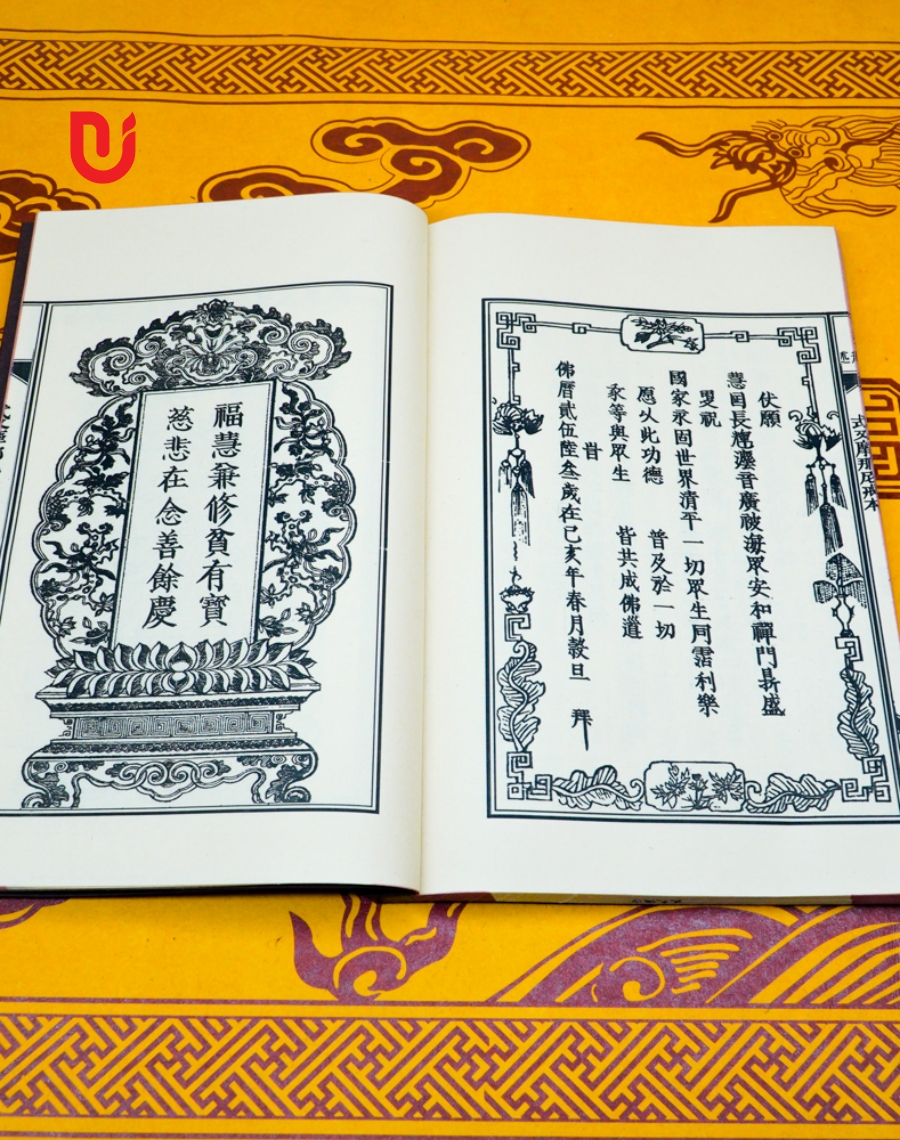 式叉摩那尼戒本
伏願
慧日長輝灋音廣被海眾安和禪門昌盛
祝
國家永固世界清平一切眾生同霑利樂
愿以此功德 普及於一切
我等與眾生 皆共成佛道
旹
佛曆貳伍陸叁歲在己亥年春月穀旦 拜
福慧兼修貧有寶
慈悲在念善餘慶